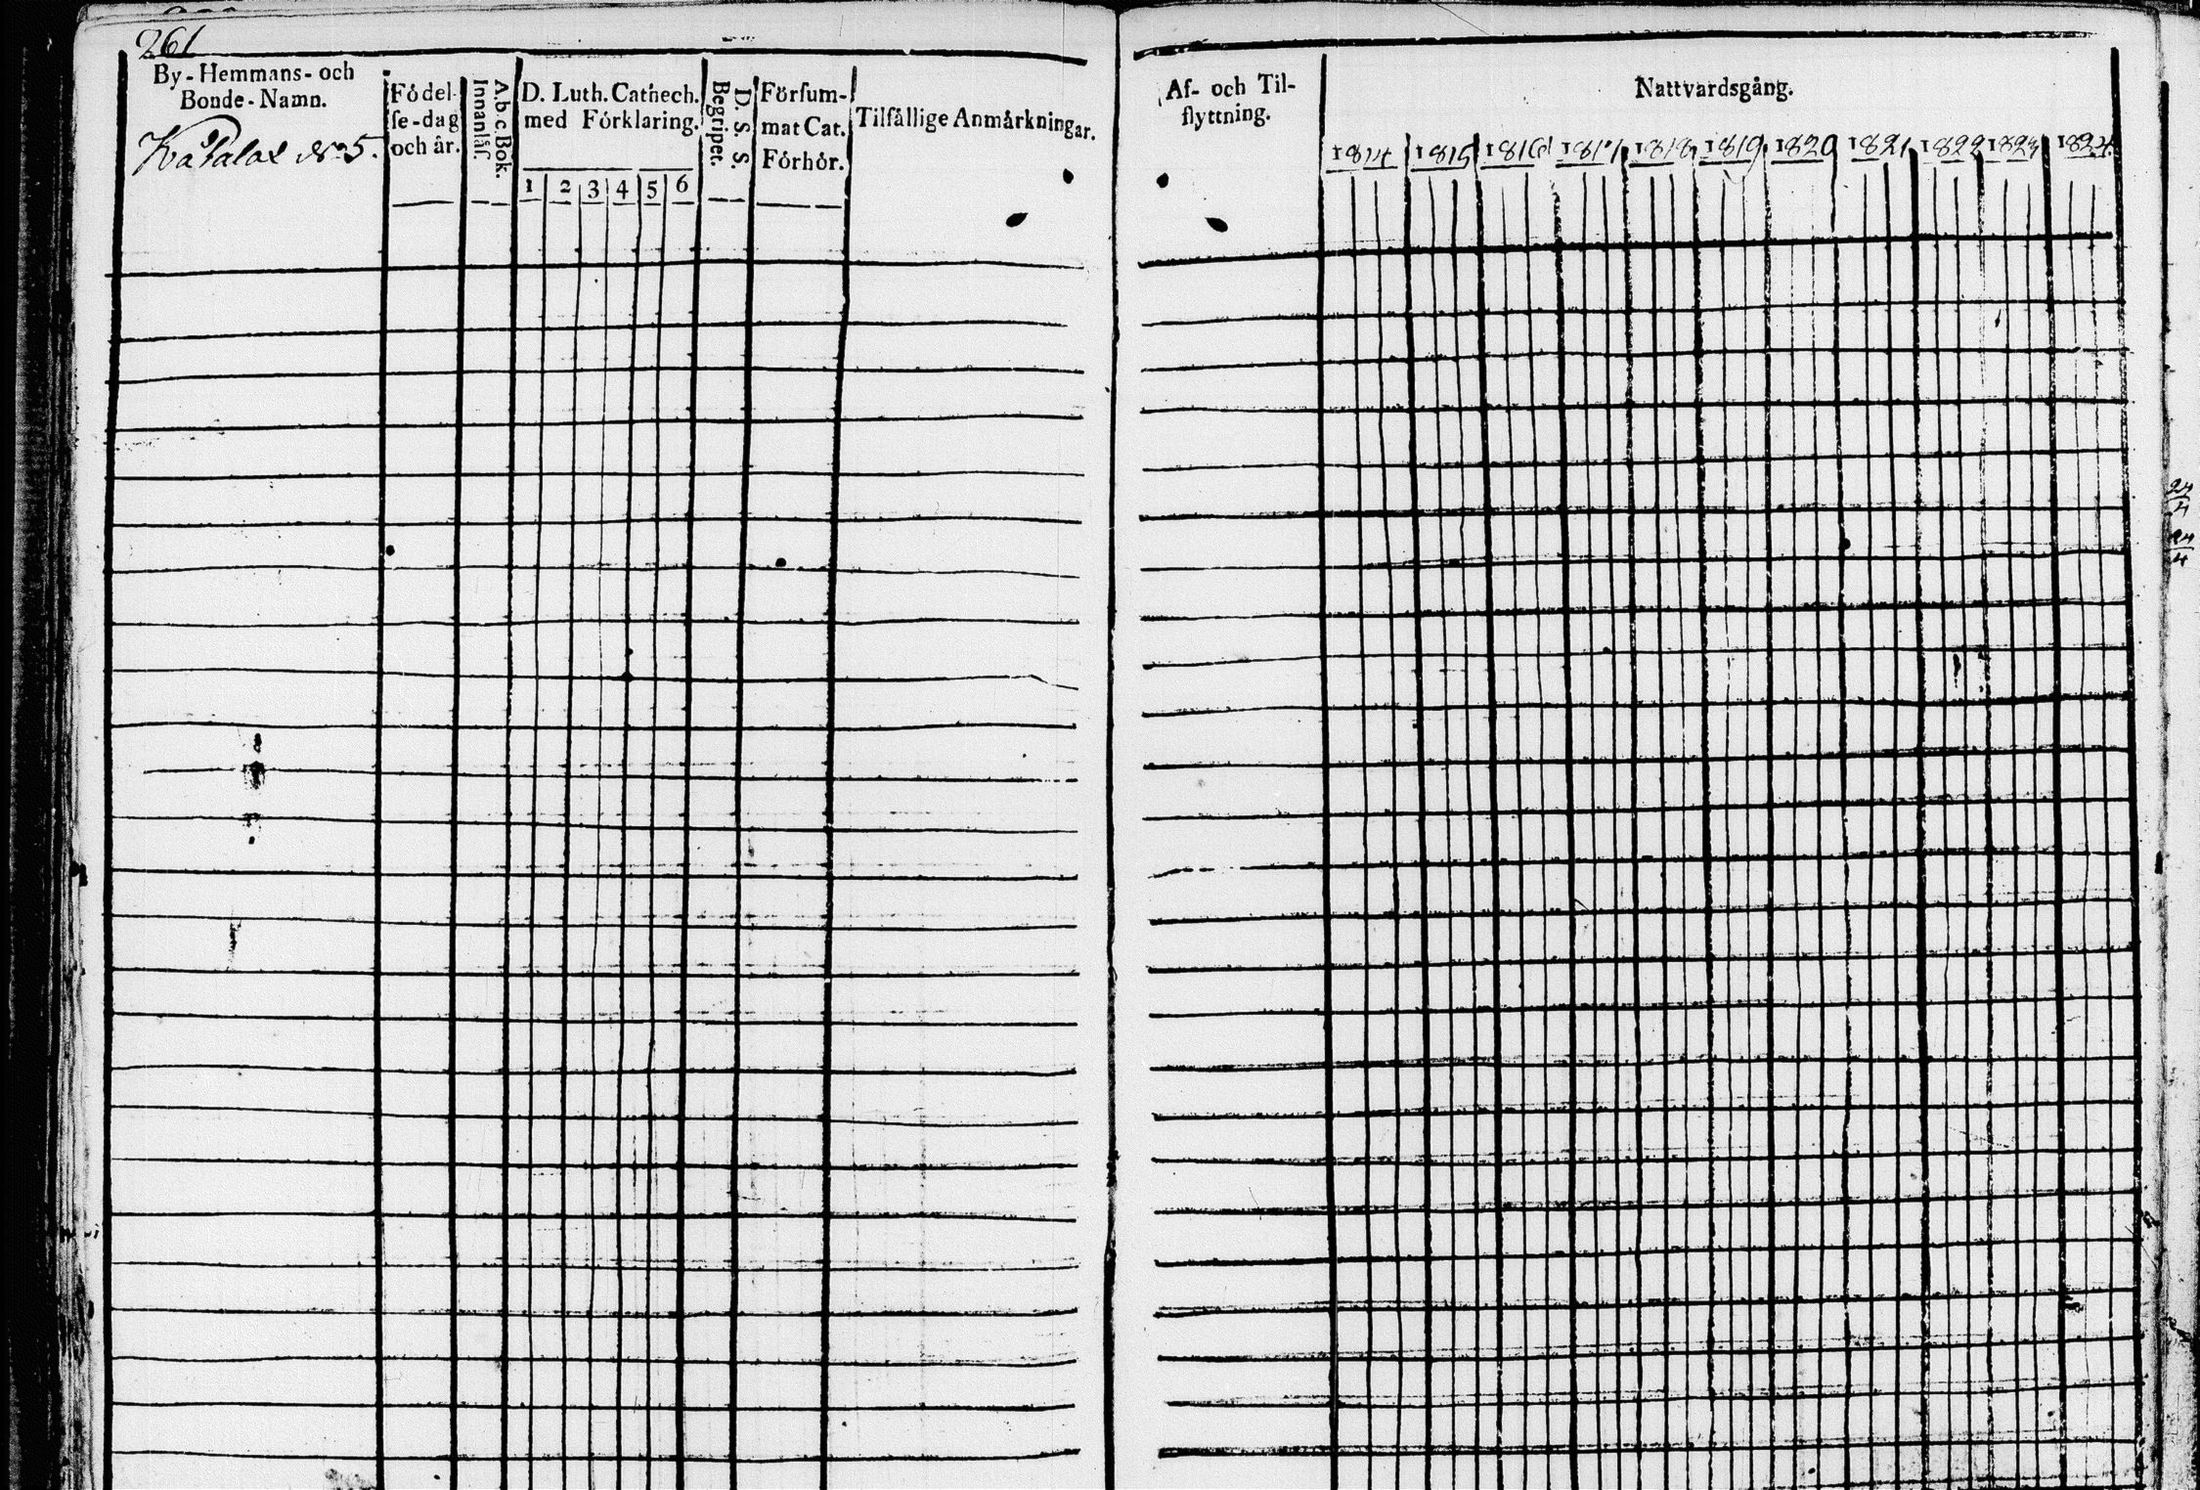 261
By-Hemmans- och
Bonde-Namn.
No 5.
Födel-
se-dag
och år.
A. b. c. Bok.
Innanläs.
D. Luth. Cathech.
med Förklaring.
1 2 3 4 5 6
D. S. S.
Begriper.
Försum-
mat Cat.
Förhör.
Tilfällige Anmärkningar.
Af- och Til-
flyttning.
Nattvardsgång.
1814 1815 1816 1817 1818 1819 1820 1821 1822 1823 1824
24
4
24
4